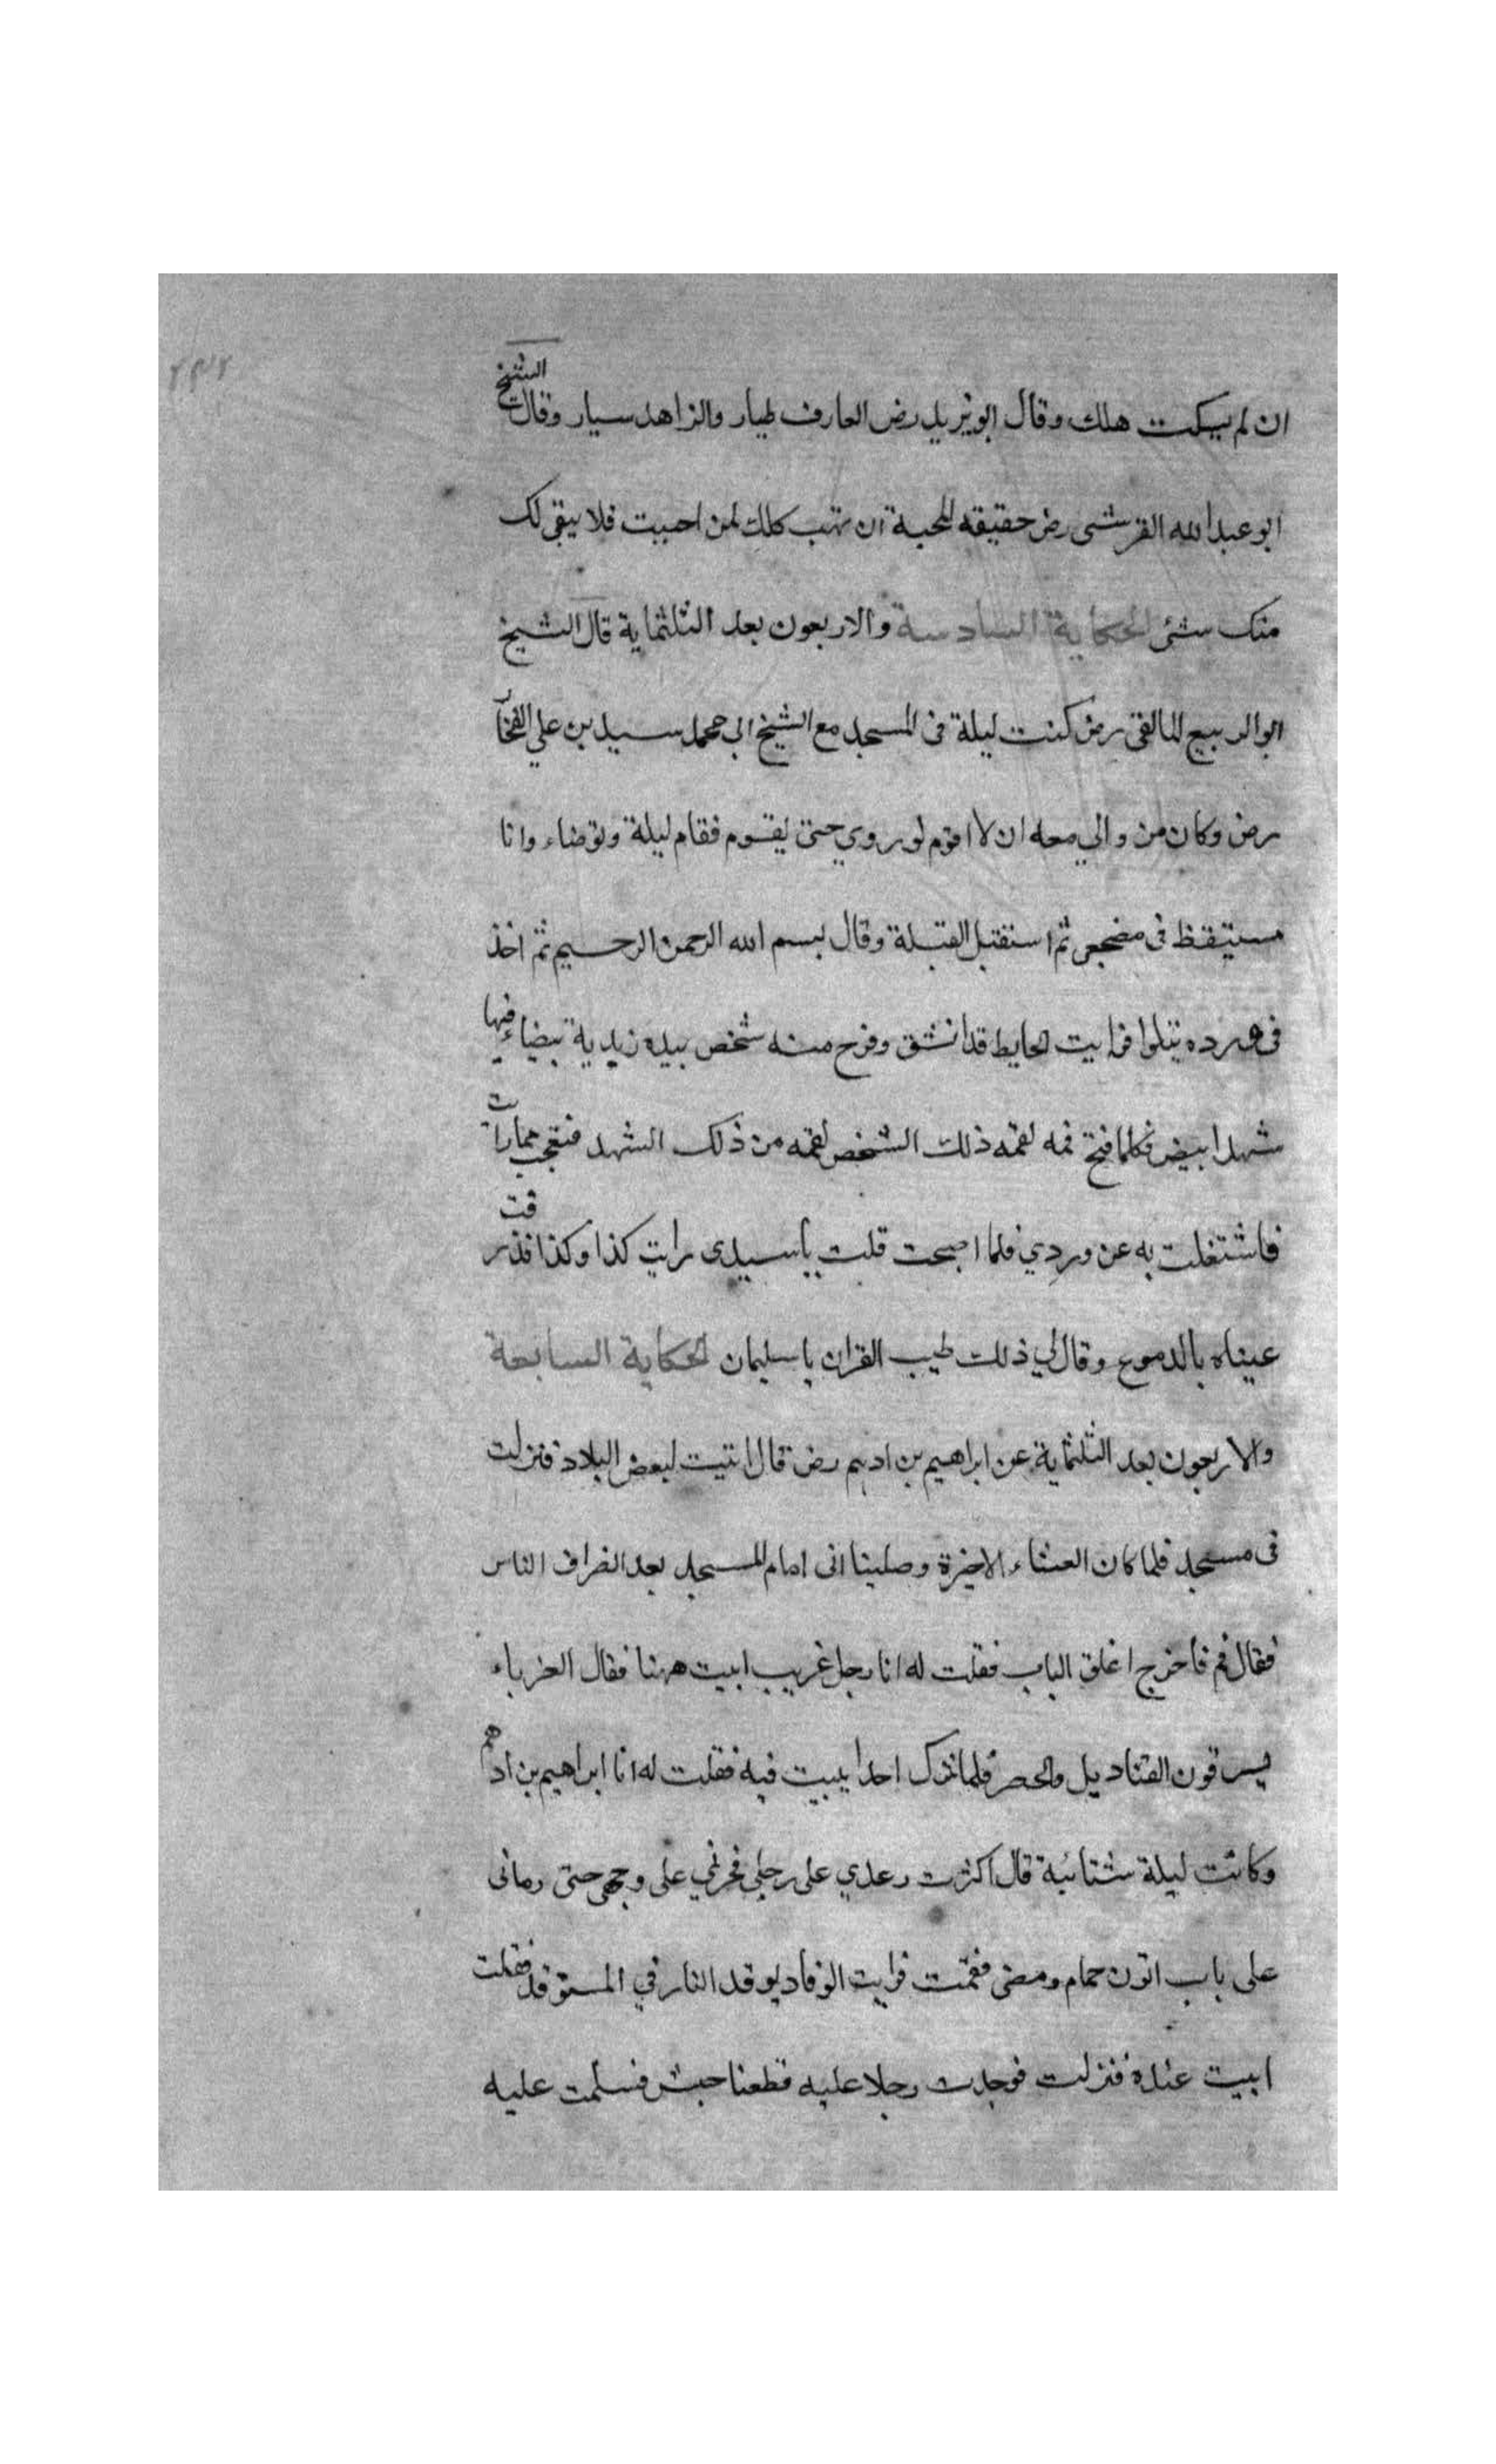 ٢٣٢
ان لم يسكت هلك وقال ابو يزيد رض العارف طيار والزاهد سيار وقال الشيخ
ابو عبد الله القرشى رض حقيقه المحبة ان تهب كلك لمن احببت فلا يبقى لك
منك شئ الحكاية السادسة والاربعون بعد الثلثماية قال الشيخ
ابو الربيع المالقى رض كنت ليلة فى المسجد مع الشيخ ابى محمد سيد بن علي الفخار
رض وكان من والي معه ان لا اقوم لوردي حتى يقوم فقام ليلة وتوضاء وانا
مستيقظ فى مضجعى ثم استقبل القبلة وقال بسم الله الرحمن الرحيم ثم اخذ
فى ورده يتلوا فرايت الحايط قد انشق وخرج منه شخص بيده زبدية بيضاء فيها
شهد ابيض فكلما فتح فمه لقمه ذلك الشخص لقمه من ذلك الشهد فتعجب مما رايت
فاشتغلت به عن وردي فلما اصبحت قلت ياسيدى رايت كذا وكذا فذرقت
عيناه بالدموع وقال لي ذلك طيب القران ياسليمان الحكاية السابعة
والاربعون بعد الثلثماية عن ابراهيم بن ادهم رض قال اتيت لبعض البلاد فنزلت
فى مسجد فلما كان العشاء الاخيرة وصلينا اتى امام المسجد بعد انصراف الناس
فقال قم فأخرج اغلق الباب فقلت له انا رجل غريب ابيت ههنا فقال الغرباء
يسرقون القناديل والحصر فلما نترك احدا يبيت فيه فقلت له انا ابراهيم بن ادهم
وكانت ليلة شتائية قال اكثرت وعدي على رجلي فجرني على وجهى حتى رمانى
على باب اتون حمام ومضى فقمت فرايت الوقاد يوقد النار في المستوقد فقلت
ابيت عنده فنزلت فوجدت رجلا عليه قطعتا خيش فسلمت عليه